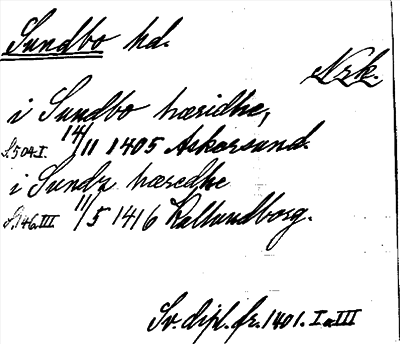 Sundbo hd.
Nrk.
i Sundbo hæridhe,
S. 504. I. 14/11 1405 Askersund.
i Sundz hæredhe
S. 146. III 11/5 1416 Kallundborg.
Sv. dipl. fr. 1401. I o. III